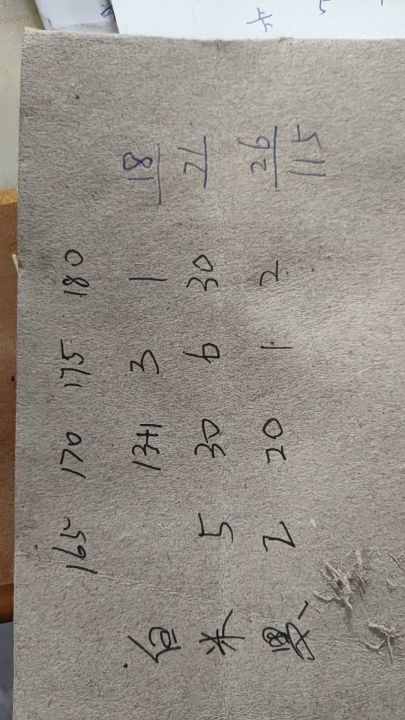 165 170 175 180
白 13+1 3 1 18
米 5 30 6 30 71
黑 2 20 1 2 26
115